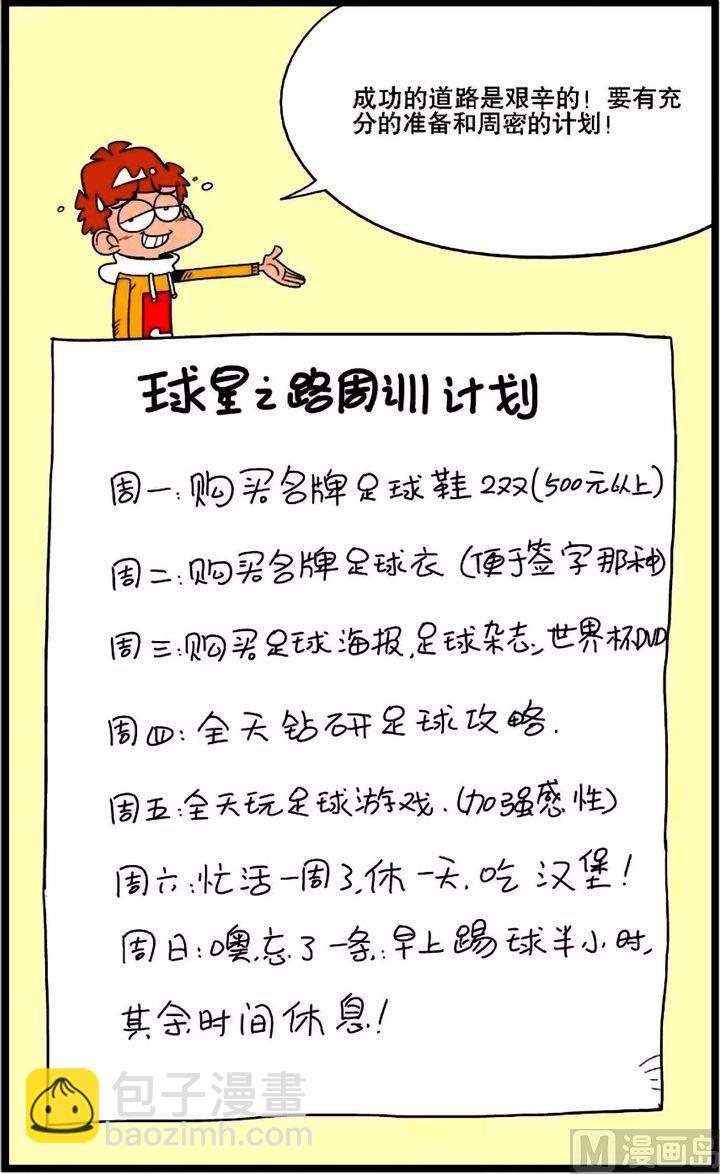 成功的道路是艰辛的！要有充
分的准备和周密的计划！
球星之路周训计划
周一：购买名牌足球鞋2双(500元以上)
周二：购买名牌足球衣(便于签字那种)
周三：购买足球海报,足球杂志、世界杯DVD
周四：全天钻研足球攻略.
周五：全天玩足球游戏.(加强感性)
周六：忙活一周了,休一天.吃汉堡!
周日：噢,忘了一条：早上踢球半小时,
其余时间休息!
包子漫畫
baozimh.com
M 漫画岛